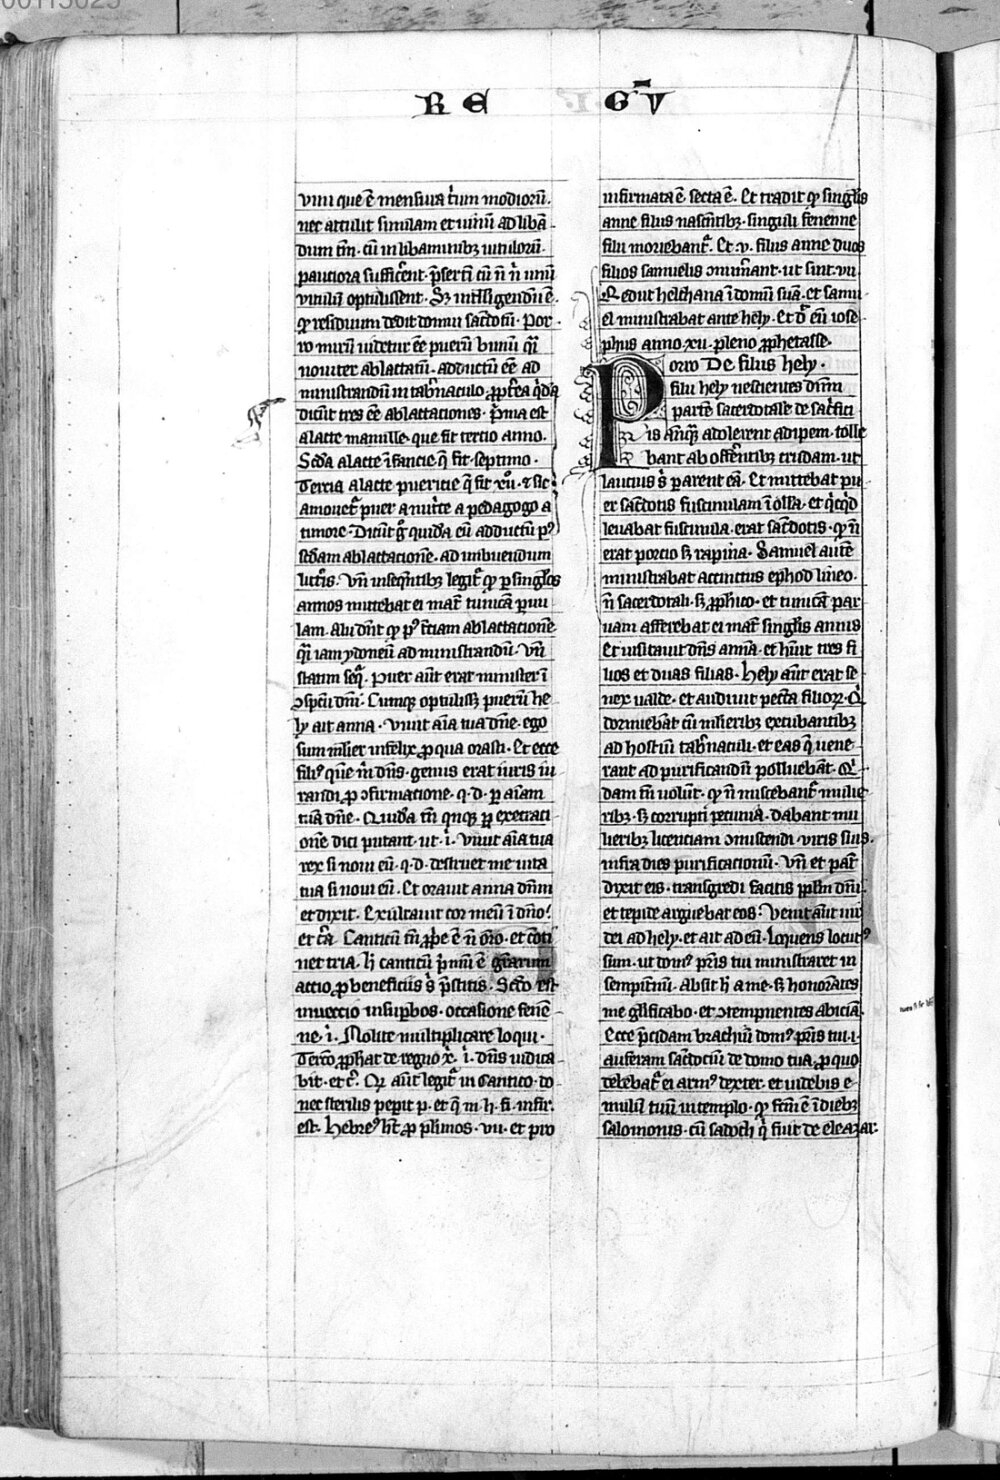 RE GU̅
vini que ē mensura t͛ium modioꝝ̄.
nec attulit similam et uinū ad libā
dum tm̄. cū in libaminibꝫ uituloꝝ̄.
pauciora sufficeͬent. p̄sertī cū n̄ n̄ unū
vitulū optulissent. Sꝫ intelligendū ē.
qꝫ residuum dedit domui sacͬdotū. Por
ro mirū uidetur eē pueͬū unū qͥ
nouiter ablactatū. adductū eē ad
ministrandū in tabͬnaculo. ꝓpͭea qͥdā
dicūt tres eē ablactationes. p̄ma est
a lacte mamille. que fit tercio anno.
Scd̄a a lacte īfancie. q̄ fit septimo.
Tercia a lacte puericie q̄ fit xii. ⁊ sic
amouet᷑ puer a nutͥce a pedagogo a
timore. Dicūt gͦ quidā eū adductū pꝰ
scd̄am ablactacionē. ad imbuendum
litt͛is. Vn̄ in seqͣntibꝫ legit᷑ qꝫ ꝑ singͣlos
annos mittebat ei mat͛ tunicā paruu
lam. alii dn̄t qꝫ pꝰ t͛ciam ablactationē.
qͥ iam ydoneū ad ministrandū. Vn̄
statim seqͥt᷑. Puer aūt erat minister ī
ꝯspc̄u dn̄i. Cumqꝫ optulissꝫ pueͬū he
ly ait anna. Viuit aīa tua dn̄e. ego
sum mͥlier infelix ꝓ qua orasti. Et ecce
filiꝰ quē m̄ dn̄s. genus erat iuris iu
randi. ꝓ ꝯfirmatione. q. d. ꝑ aīam
tuā dn̄e. Quidā tn̄ qn̄qꝫ ꝓ execraci
onē dici putant. ut .i. viuit aīa tua
rex si noui eū. q. d. destruet me uita
tua si noui eū. Et orauit anna dn̄m
et dixit. Exultauit cor meū ī dn̄o.
et cͭa. Canticū tn̄ ꝓphe ē n̄ orō. et cōti
net tria. h̄ canticū p̄mū ē gr̄arum
actio ꝓ beneficiis sͥ p̄stitis. Scd̄o est
inuectio in suꝑbos. occasione fenē
ne .i. Nolite multiplicare loqui.
Tercō ꝓphat de regno x̄. .i. dn̄s iudica
bit. et cͭ. Qꝛ aūt legit᷑ in cantico. do
nec sterilis pepit p. et q̄ m. h. fi. infir.
est. Hebreꝰ hͭt ꝓ plͥimos. vii. et pro
infirmata ē. secta ē. Et tradit qꝫ singͣlis
anne filiis nascētibꝫ. singuli fenenne
filii moriebant᷑. Et .v. filiis anne duos
filios samuelis ꝯnumͬant. ut sint .vii.
Rediit helchana ī domū suā. et samu
el ministrabat ante hely. Et dͭ eū iose
phus anno .xii. pleno ꝓphetasse.
Porro De filiis hely.
filii hely nescientes dn̄m
parte sacerdotale de sacͬifici
is anͭqꝫ adolerent adipem. tolle
bant ab offerētibꝫ crudam. ut
lautius sͥ ꝑarent eā. Et mittebat pu
er sacͬdotis fuscinulam ī olla. et qͥcqͥd
leuabat fuscinula. erat sacͬdotis. qꝫ n̄
erat porcio sꝫ rapina. Samuel autē
ministrabat accinctus ephod lineo.
n̄ sacerdotali. sꝫ ꝓphico. et tunicā par
uam afferebat ei mat͛ singͣlis annis
Et uisitauit dn̄s annā. et hͣuit tres fi
lios et duas filias. Hely aūt erat se
nex ualde. et audiuit pctā filioꝝ. qͥ
dormiebāt cū mͥlieribꝫ excubantibꝫ
ad hostiū tabͬnaculi. et eas q̄ uene
rant ad purificandū polluebāt. Qͥ
dam tn̄ uolūt. qꝫ n̄ miscebant᷑ mulie
ribꝫ. sꝫ corrupti pecunia. dabant mu
lieribꝫ licenciam ꝯmiscendi. viris suis.
infra dies purificacionū. Vn̄ et pat͛
dixit eis. transgredi facitis ppl̄m dn̄i.
et tepide arguebat eos. Venit aūt uir
dei ad hely. et ait ad eū. Loquens locutꝰ
sum. ut domꝰ pr̄is tui ministraret in
sempitͬnū. Absit h̄ a me. sꝫ honorātes
me glͥificabo. et ꝯtempnentes abiciā.
Ecce p̄cidam brachiū domꝰ pr̄is tui .i.
auferam sacͬdociū de domo tua. ꝓ quo
debebat᷑ ei armꝰ dexter. et uidebis e
mulū tuū in templo. qꝫ fcm̄ ē ī diebꝫ
salomonis. cū sadoch qͥ fuit de eleazar.